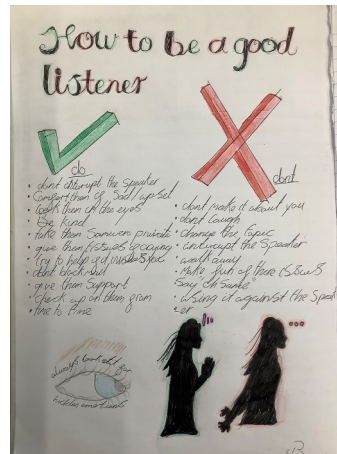 How to be a good
listener
do
• dont interrupt the Speaker
• Comfort them if Sad/upset
• look them in the eyes
• Be kind
• take them somewere private
• give them tissues if crying
• try to help
• dont
• give them support
• check up on them from
• time to time
dont
• dont make it about you
• dont laugh
• change the topic
• interrupt the Speaker
• walk away
• Make fun of there issues
Say "oh same"
• using it against the Speak
er
always look out for
hidden emotions